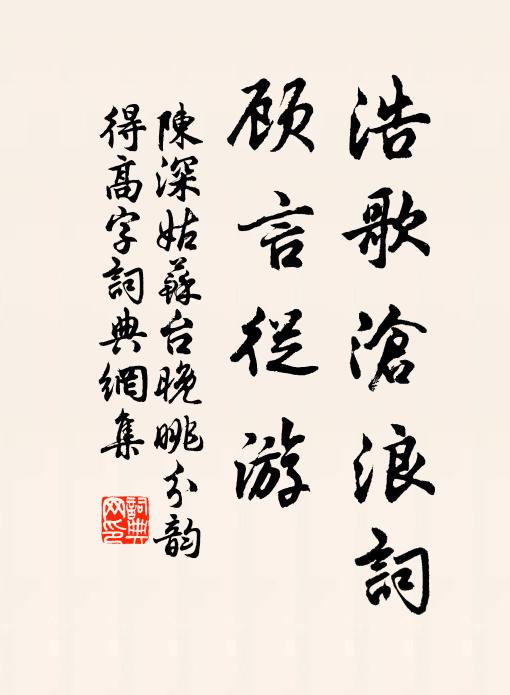 浩歌滄浪詞
顾言從游
陳深姑蘇台晚眺分韵
得高字詞典網集
詞典
网印